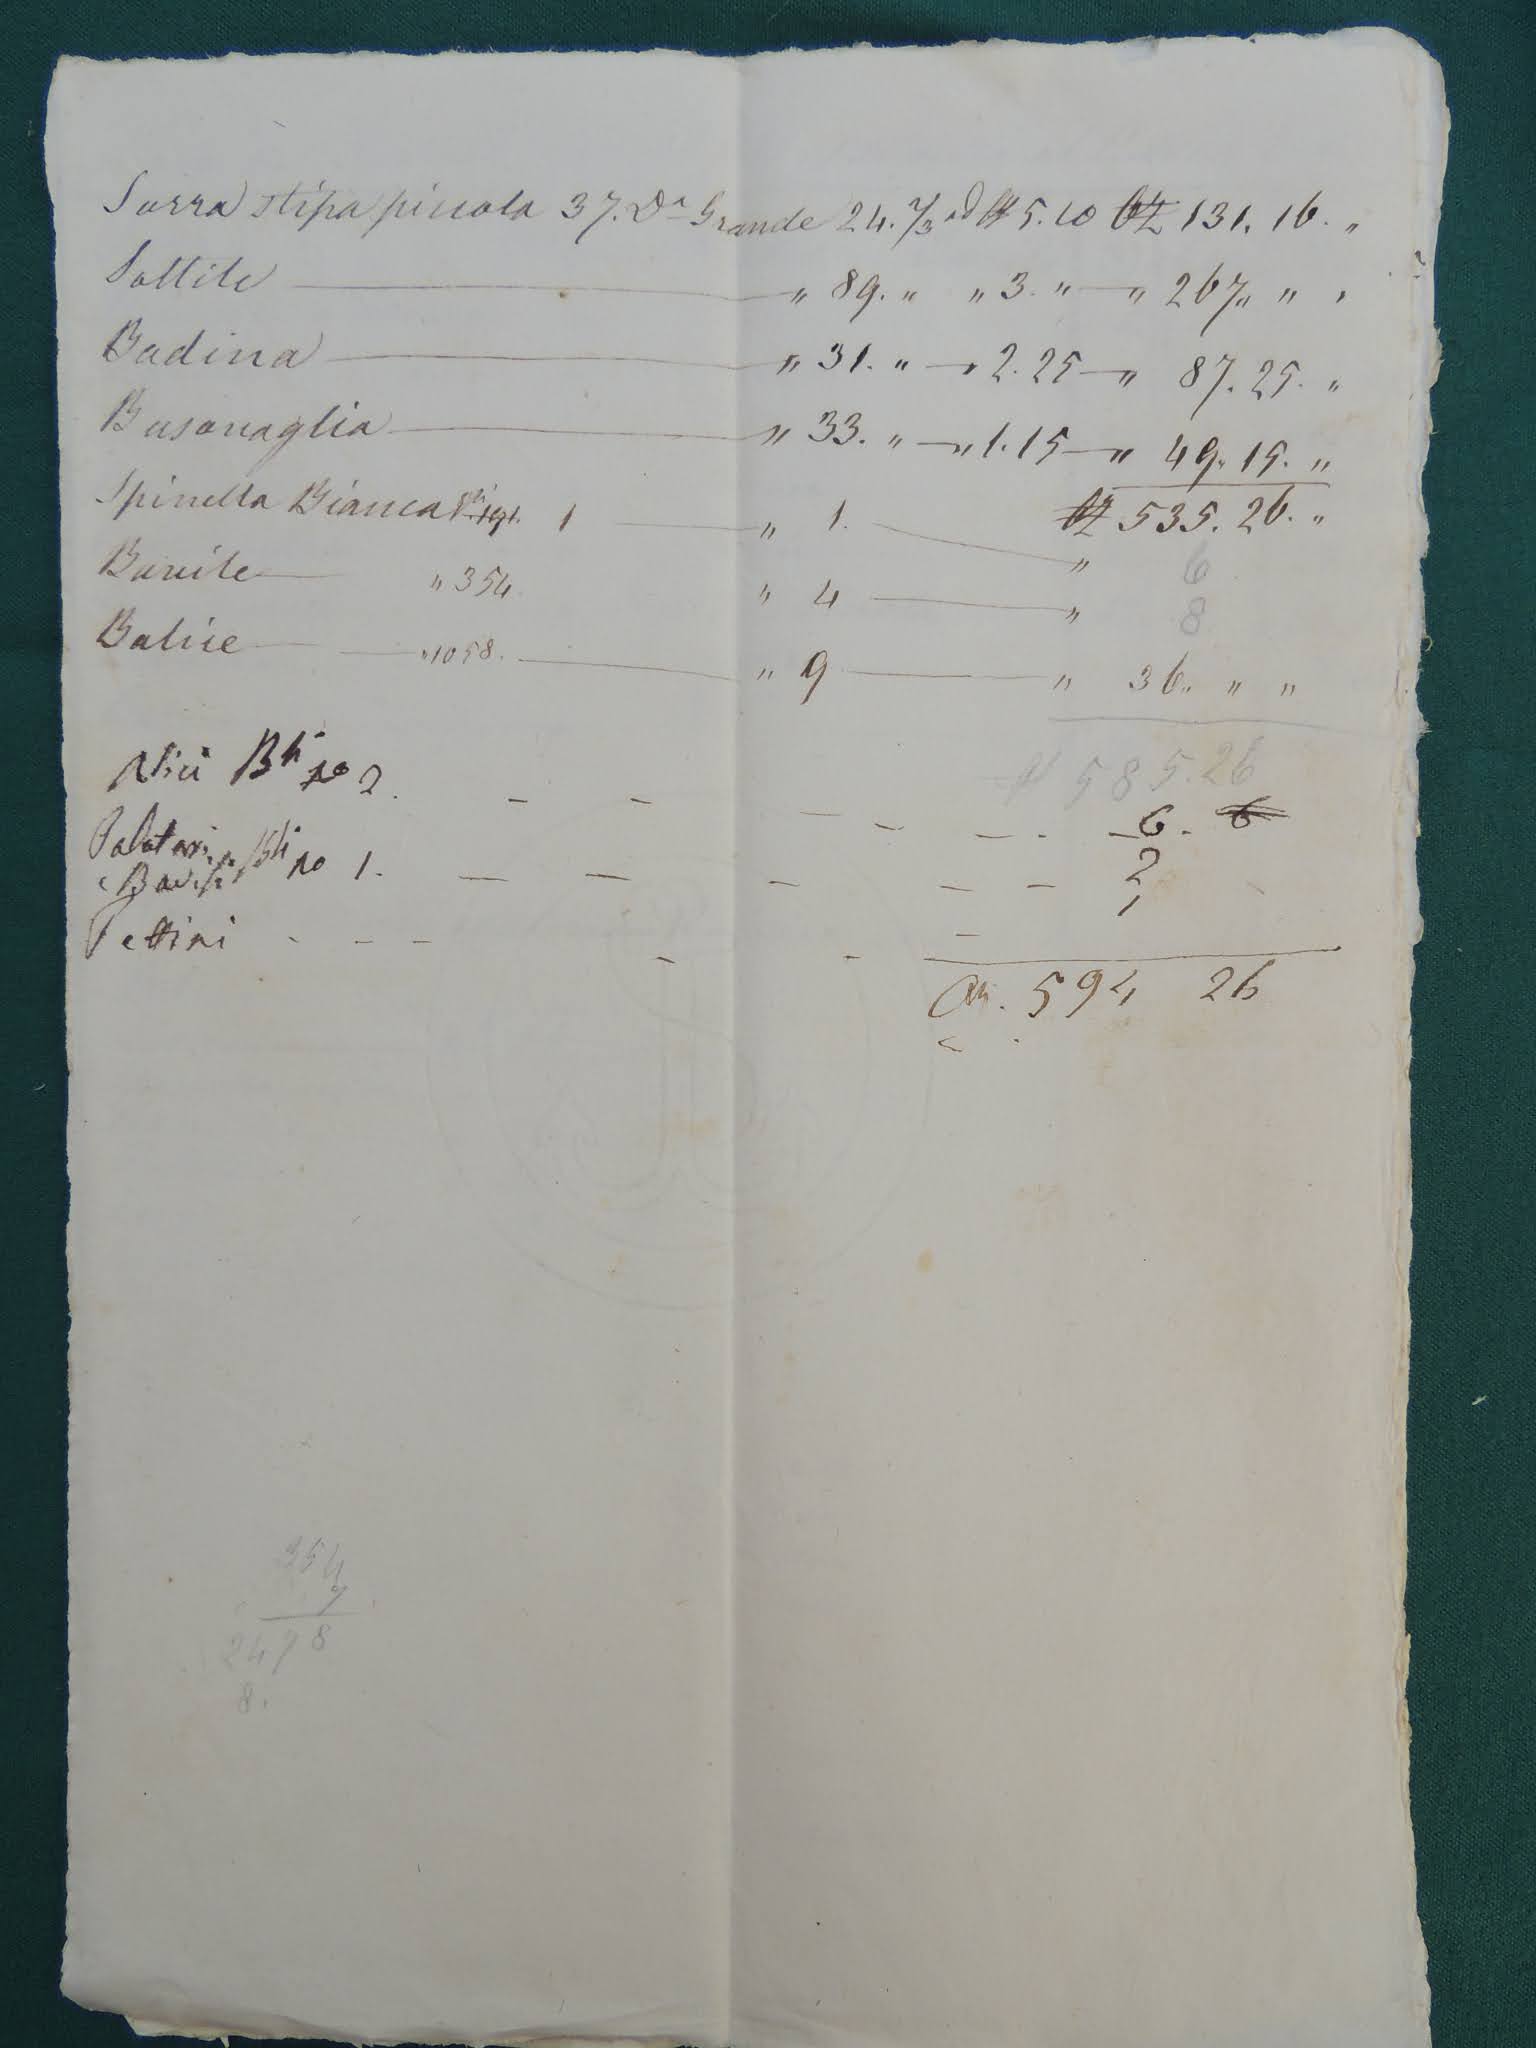 Surra stipa piccola 37. Da Grande 24. 7/3 ad 5.10 131. 16. "
Sottile " 89. " " 3. " " 267. " "
Budina " 31. " 2.25 " 87. 25. "
Busonaglia " 33. " " 1.15 " 49. 15. "
535. 26. "
Spinella Bianca 1 " 1. " 6
Barile " 354 " 4 " 8
Balice " 1058. " 9 " 36. " "
585.26
Alici Bli no 2. 6.
Palatari
Bli no 1. 2
Pettini 1
594 26
354
7
2478
8.